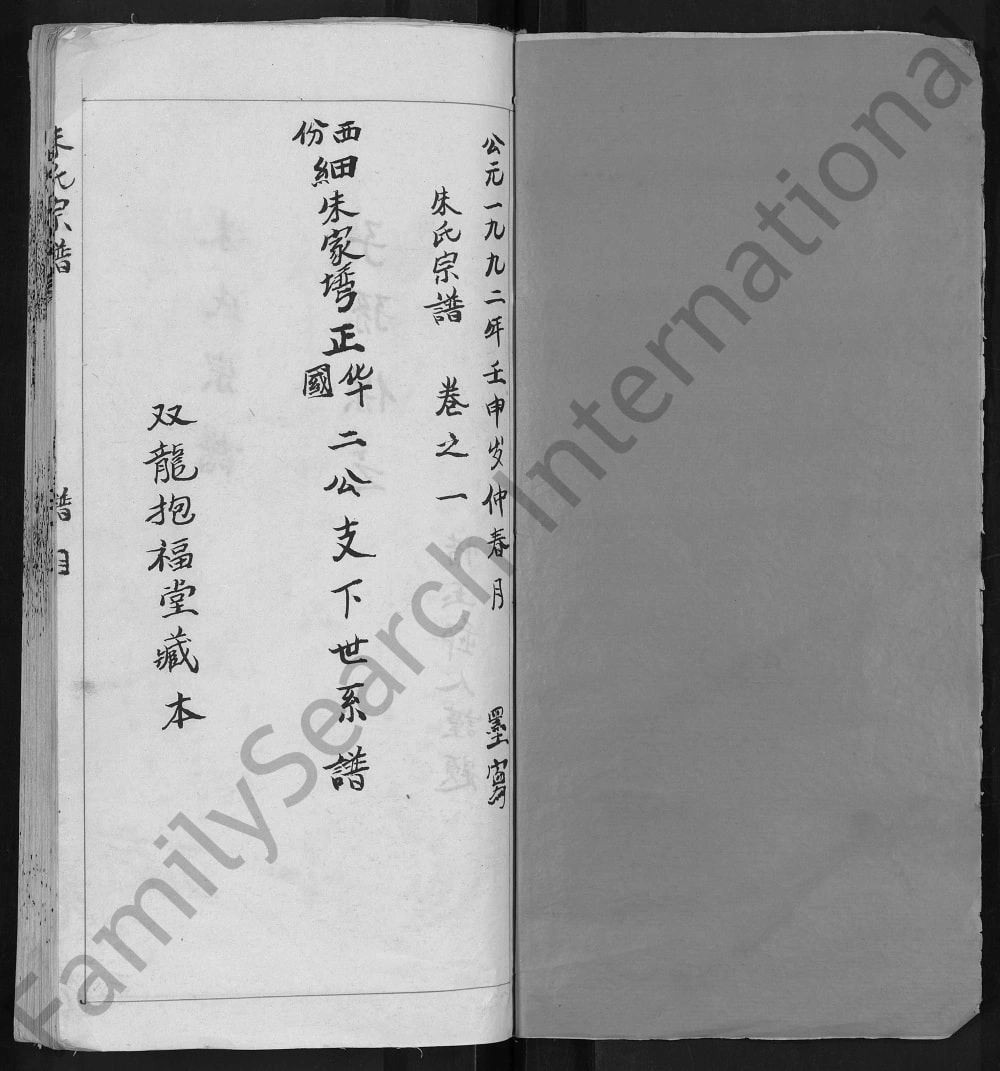 公元一九九二年壬申岁仲春月 墨寫
朱氏宗譜 卷之一
西份細朱家塆正华國二公支下世系譜
双龍抱福堂藏本
朱氏宗譜 譜目
FamilySearch International